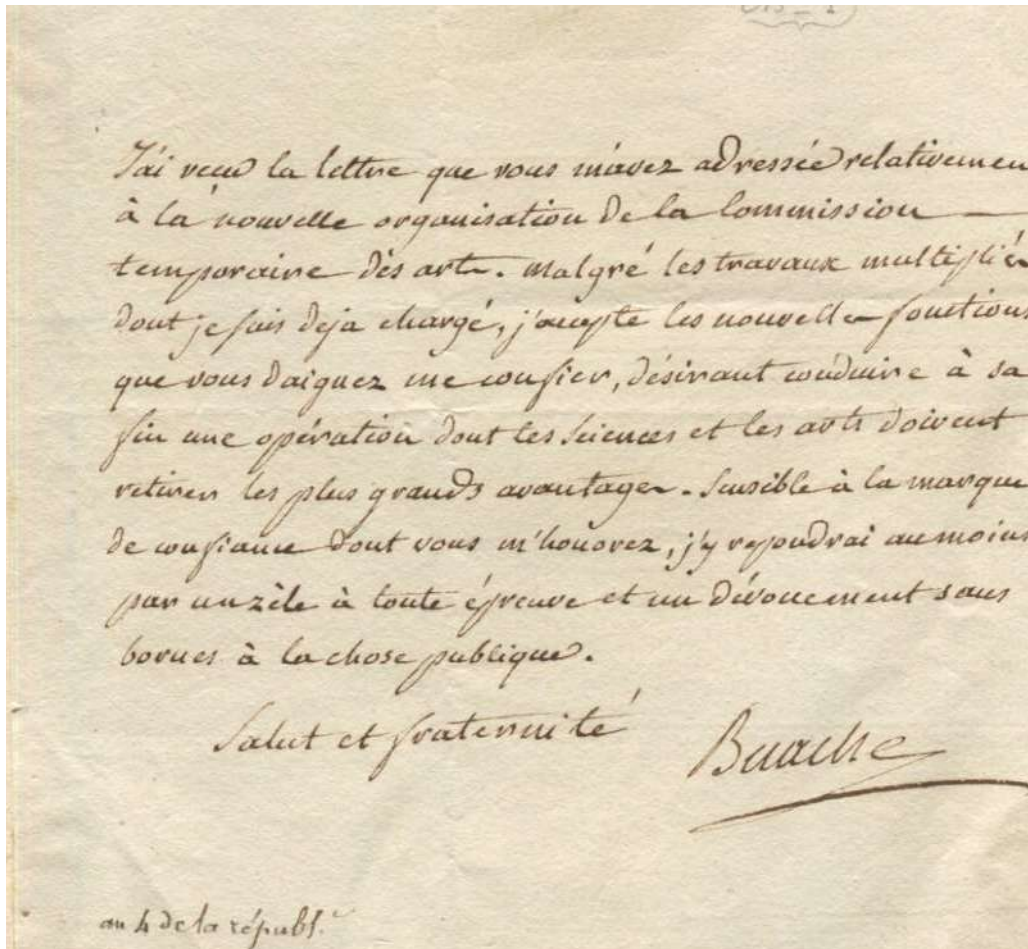 J'ai recu la lettre que vous m'avez adressée relativemen
à la nouvelle organisation de la Commission
temporaire des arts. malgré les travaux multipliés
dont je suis deja chargé, j'accepte les nouvelles fonctions
que vous daignez me confier, désirant conduire à sa
fin une opération dont les sciences et les arts doivent
retirer les plus grands avantages. Sensible à la marque
de confiance dont vous m'honorez, j'y repondrai au moins
par un zèle à toute épreuve et un dévouement sans
bornes à la chose publique.
Salut et fraternité
Buache
an 4 de la républ.